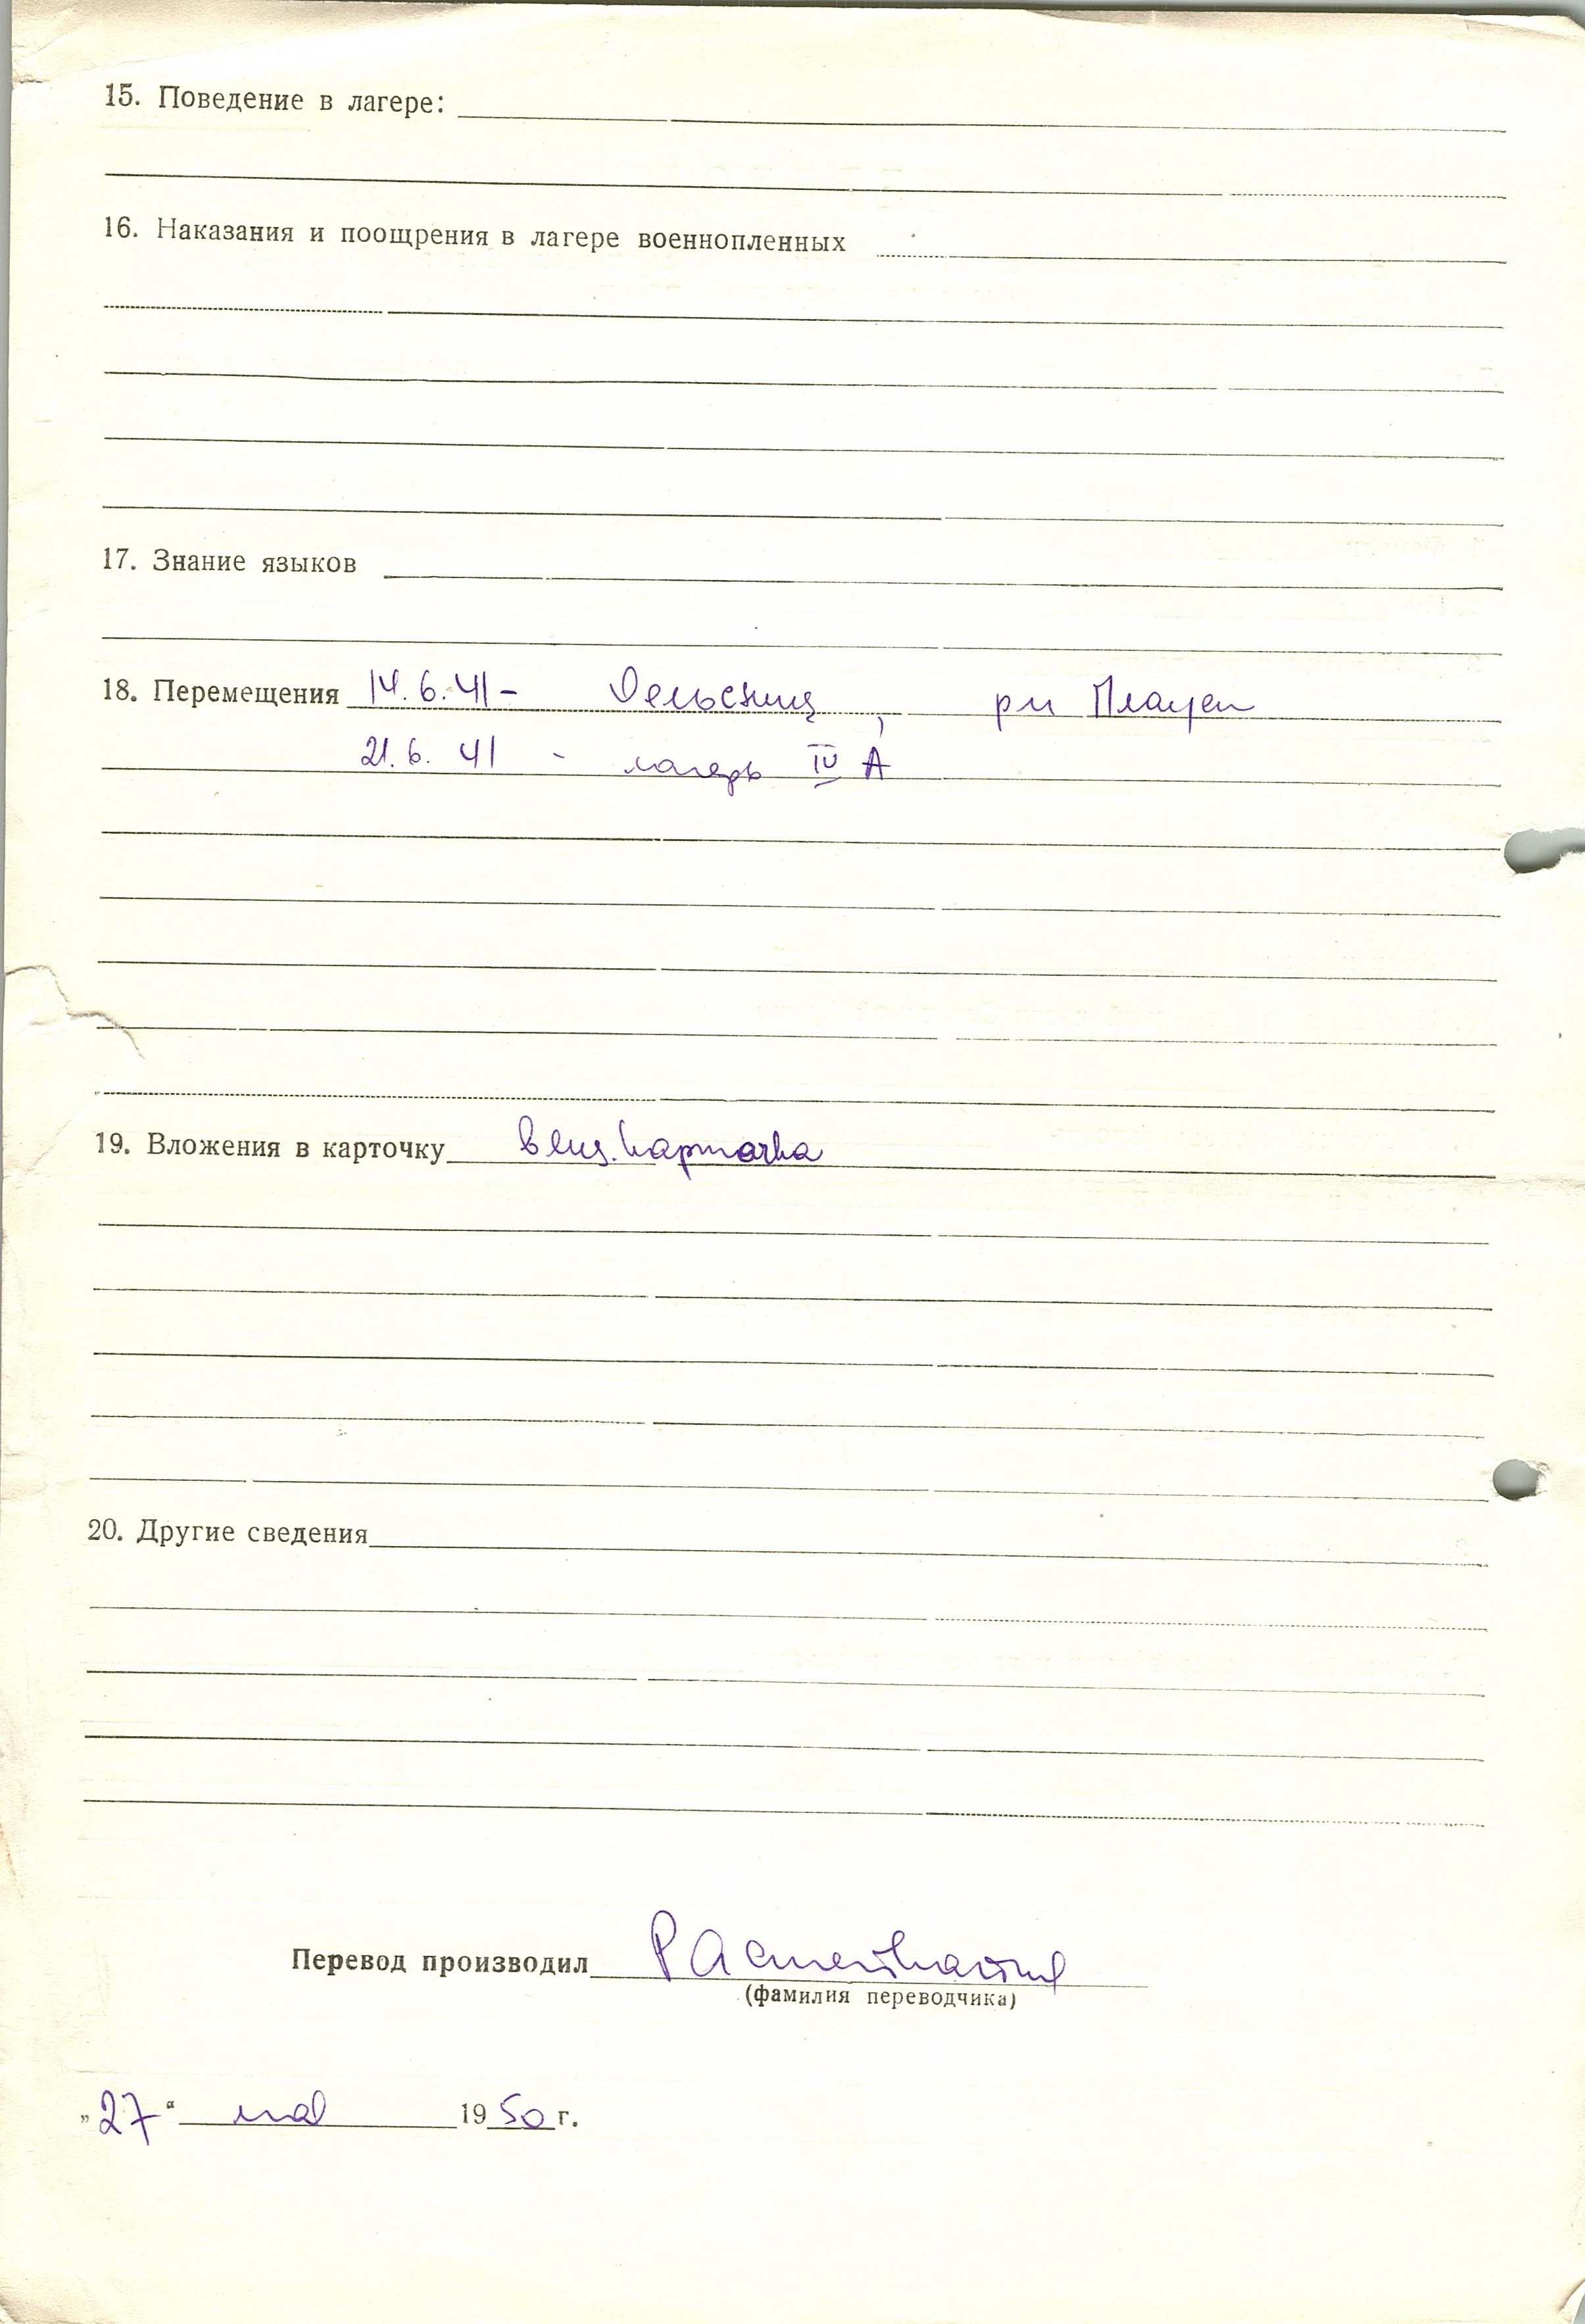 15. Поведение в лагере:
16. Наказания и поощрения в лагере военнопленных
17. Знание языков
18. Перемещения 14.6.41 - Оельсниц, рн Плауен
21.6.41 - лагерь IV А
19. Вложения в карточку карточка
20. Другие сведения
Перевод производил
(фамилия переводчика)
„27“ мая 1950 г.